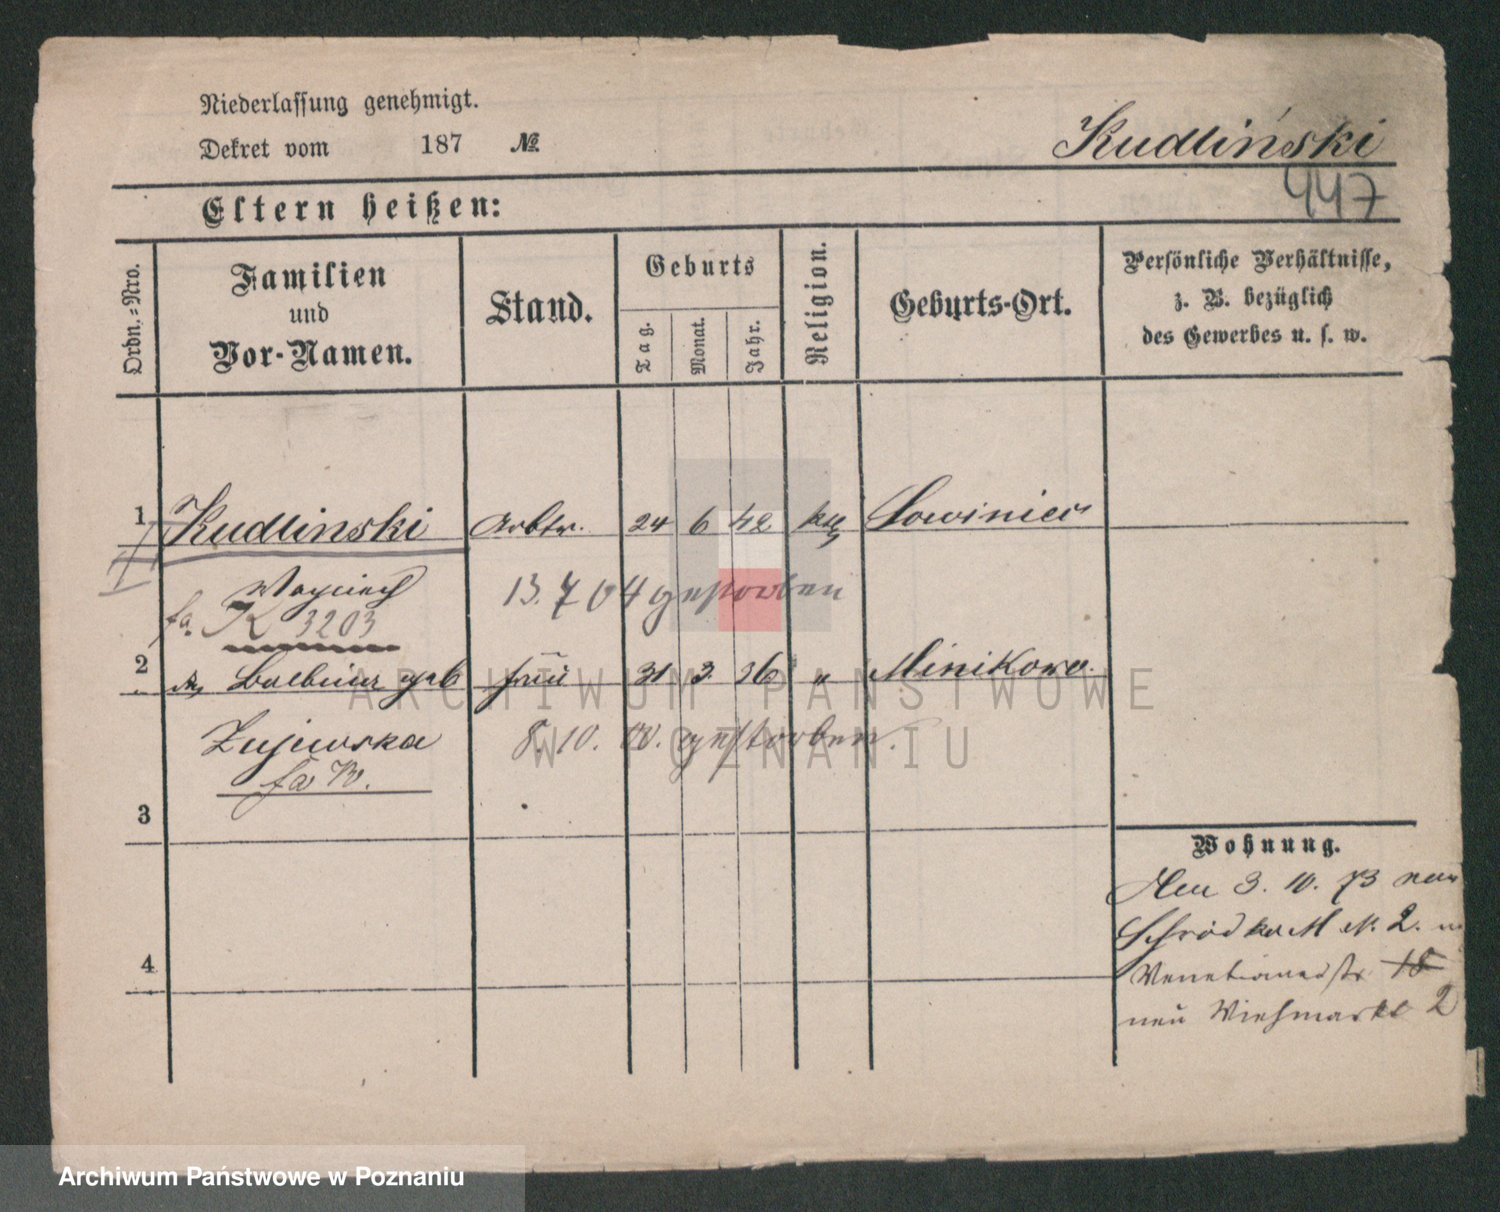 Niederlassung genehmigt.
Dekret vom 187 №
Kudliński
447
Eltern heißen:
Ordn.-Nro.
Familien
und
Vor-Namen.
Stand.
Geburts
Tag.
Monat.
Jahr.
Religion.
Geburts-Ort.
Persönliche Verhältnisse,
z. B. bezüglich
des Gewerbes u. s. w.
1 Kudlinski Arbtr. 24 6 42 kth Lowiniec
Woyciech 13. 7 04 gestorben
fa. K 3203
2 Balbina geb frau 31 3. 36 " Minikowo.
Zujewska 8. 10. 00. gestorben.
fa W.
3
Wohnung.
3. 10. 73
Schrodka M N. 2.
4
Venetianerstr 18
neu Viehmarkt 2
ARCHIWUM PAŃSTWOWE
W POZNANIU
Archiwum Państwowe w Poznaniu